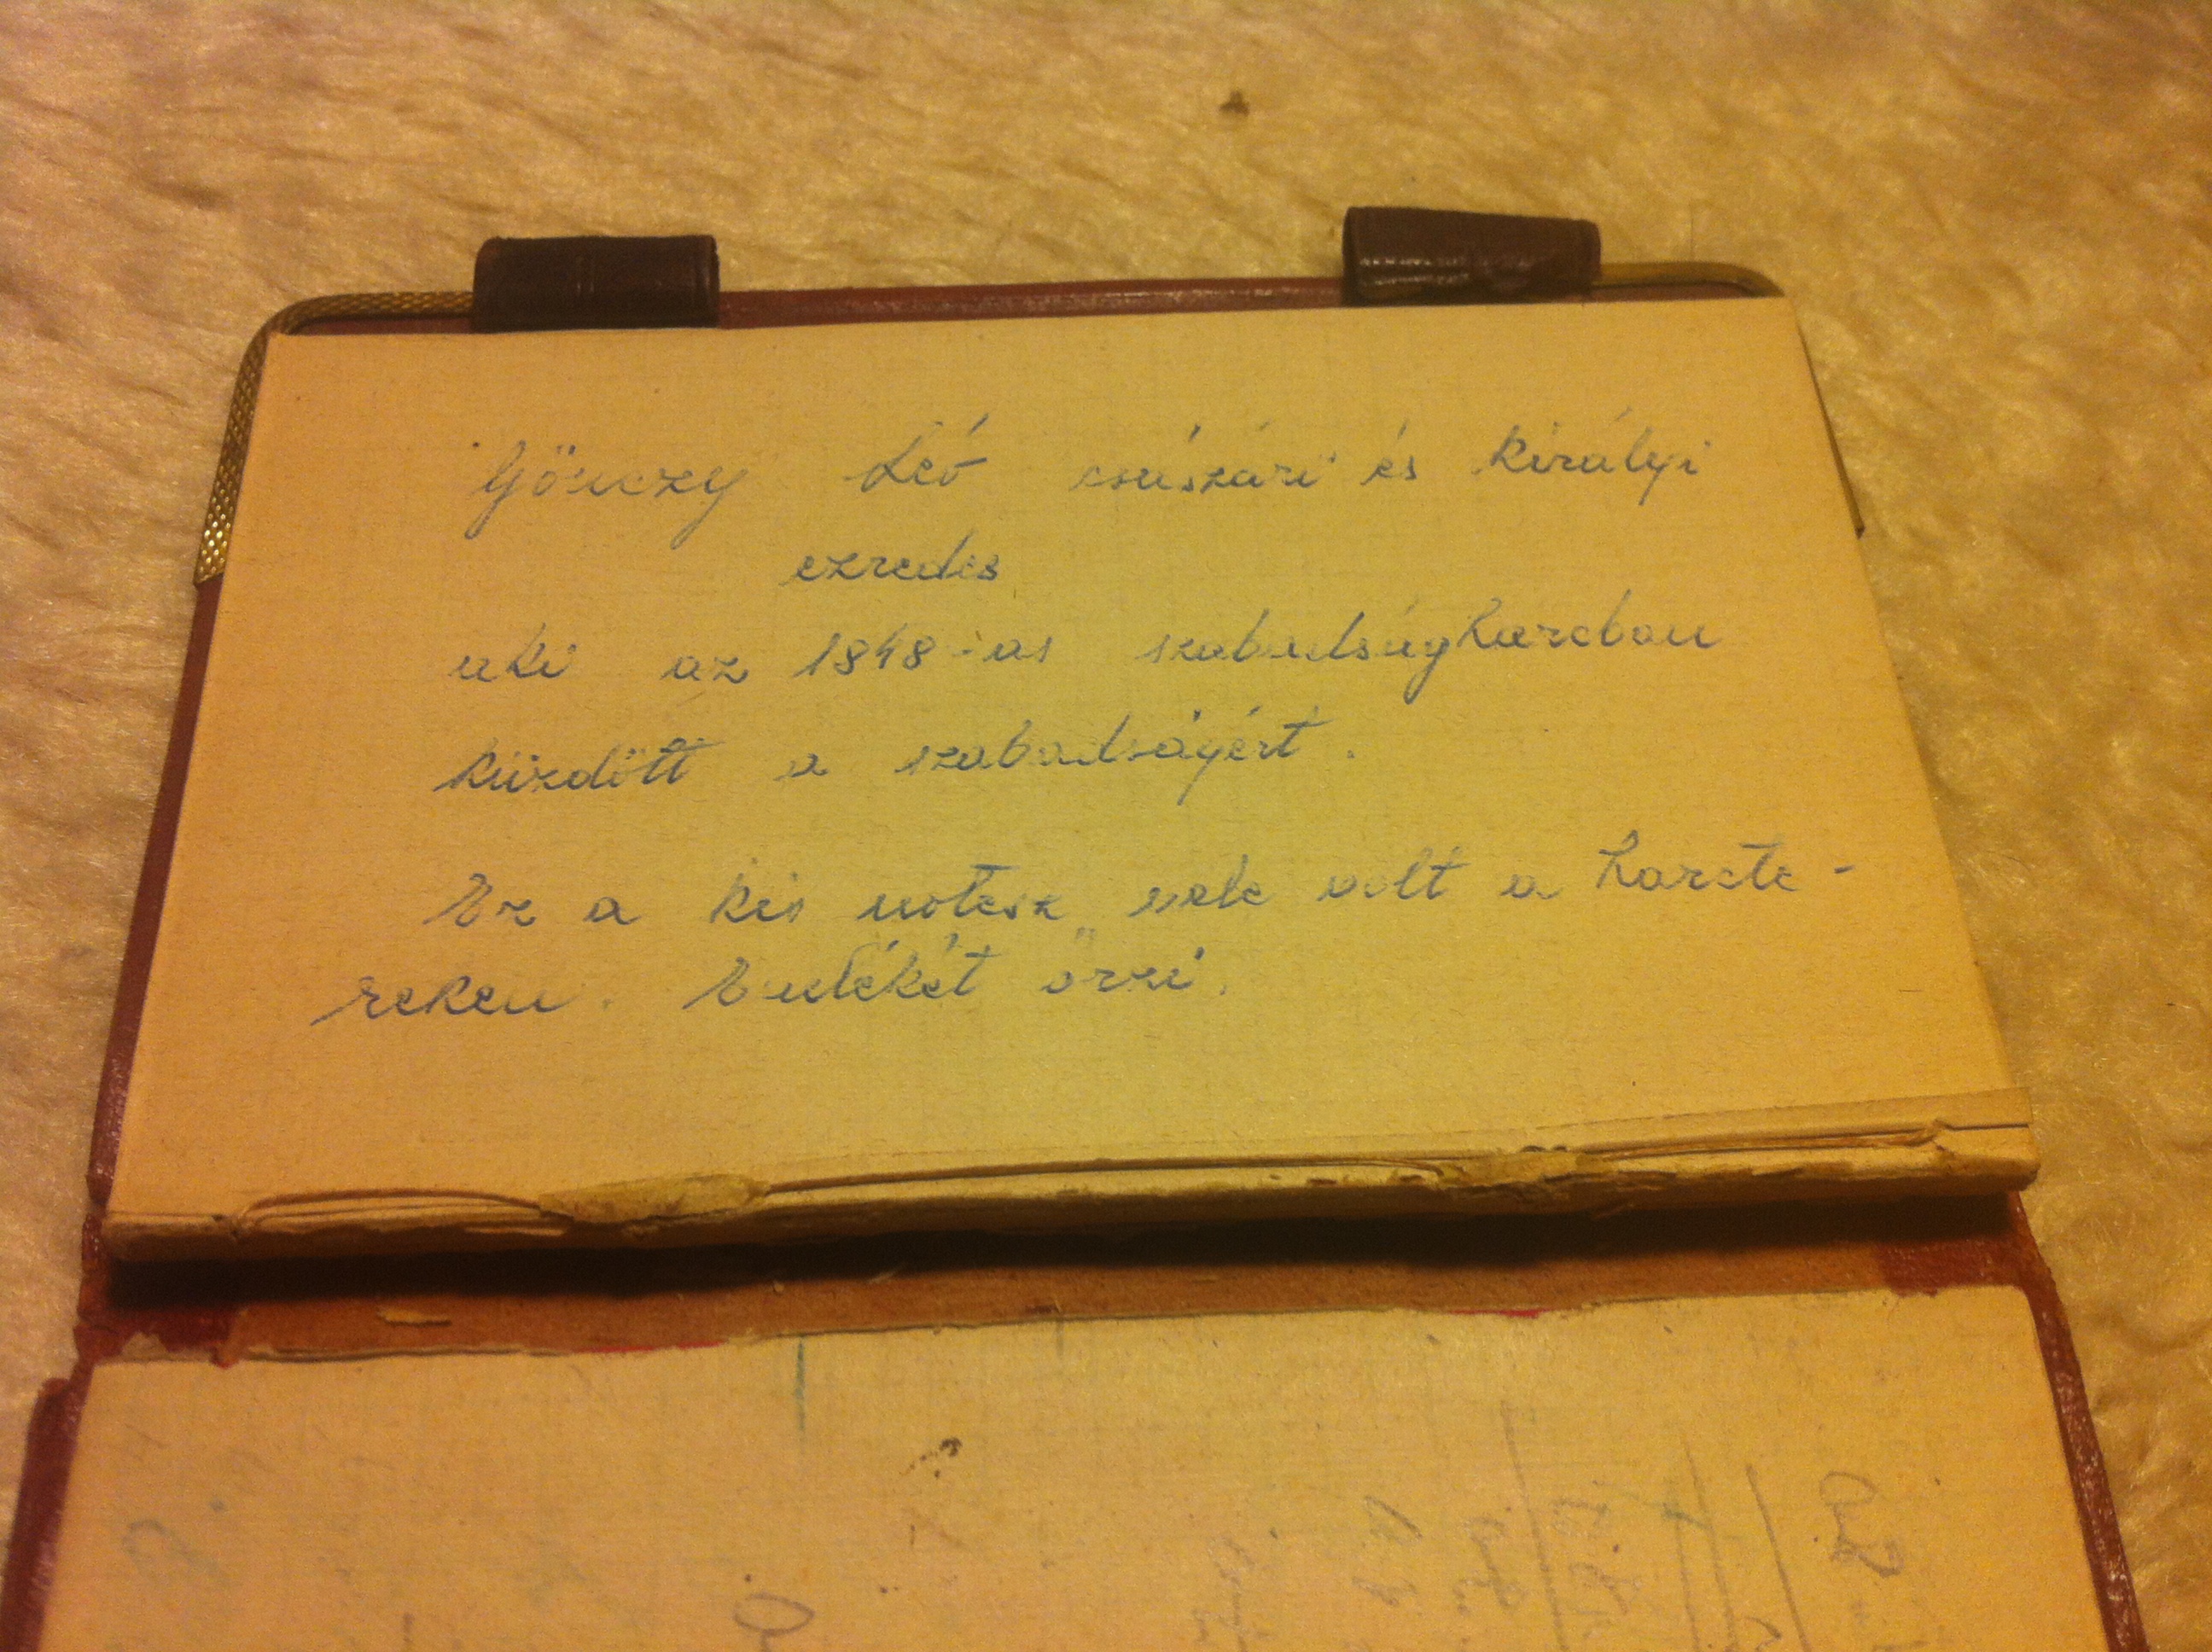 Gönczy Leó császári és királyi
ezredes
aki az 1848-as szabadságharcban
küzdött a szabadságért.
Ez a kis notesz vele volt a harcte-
reken. Emlékét őrzi.